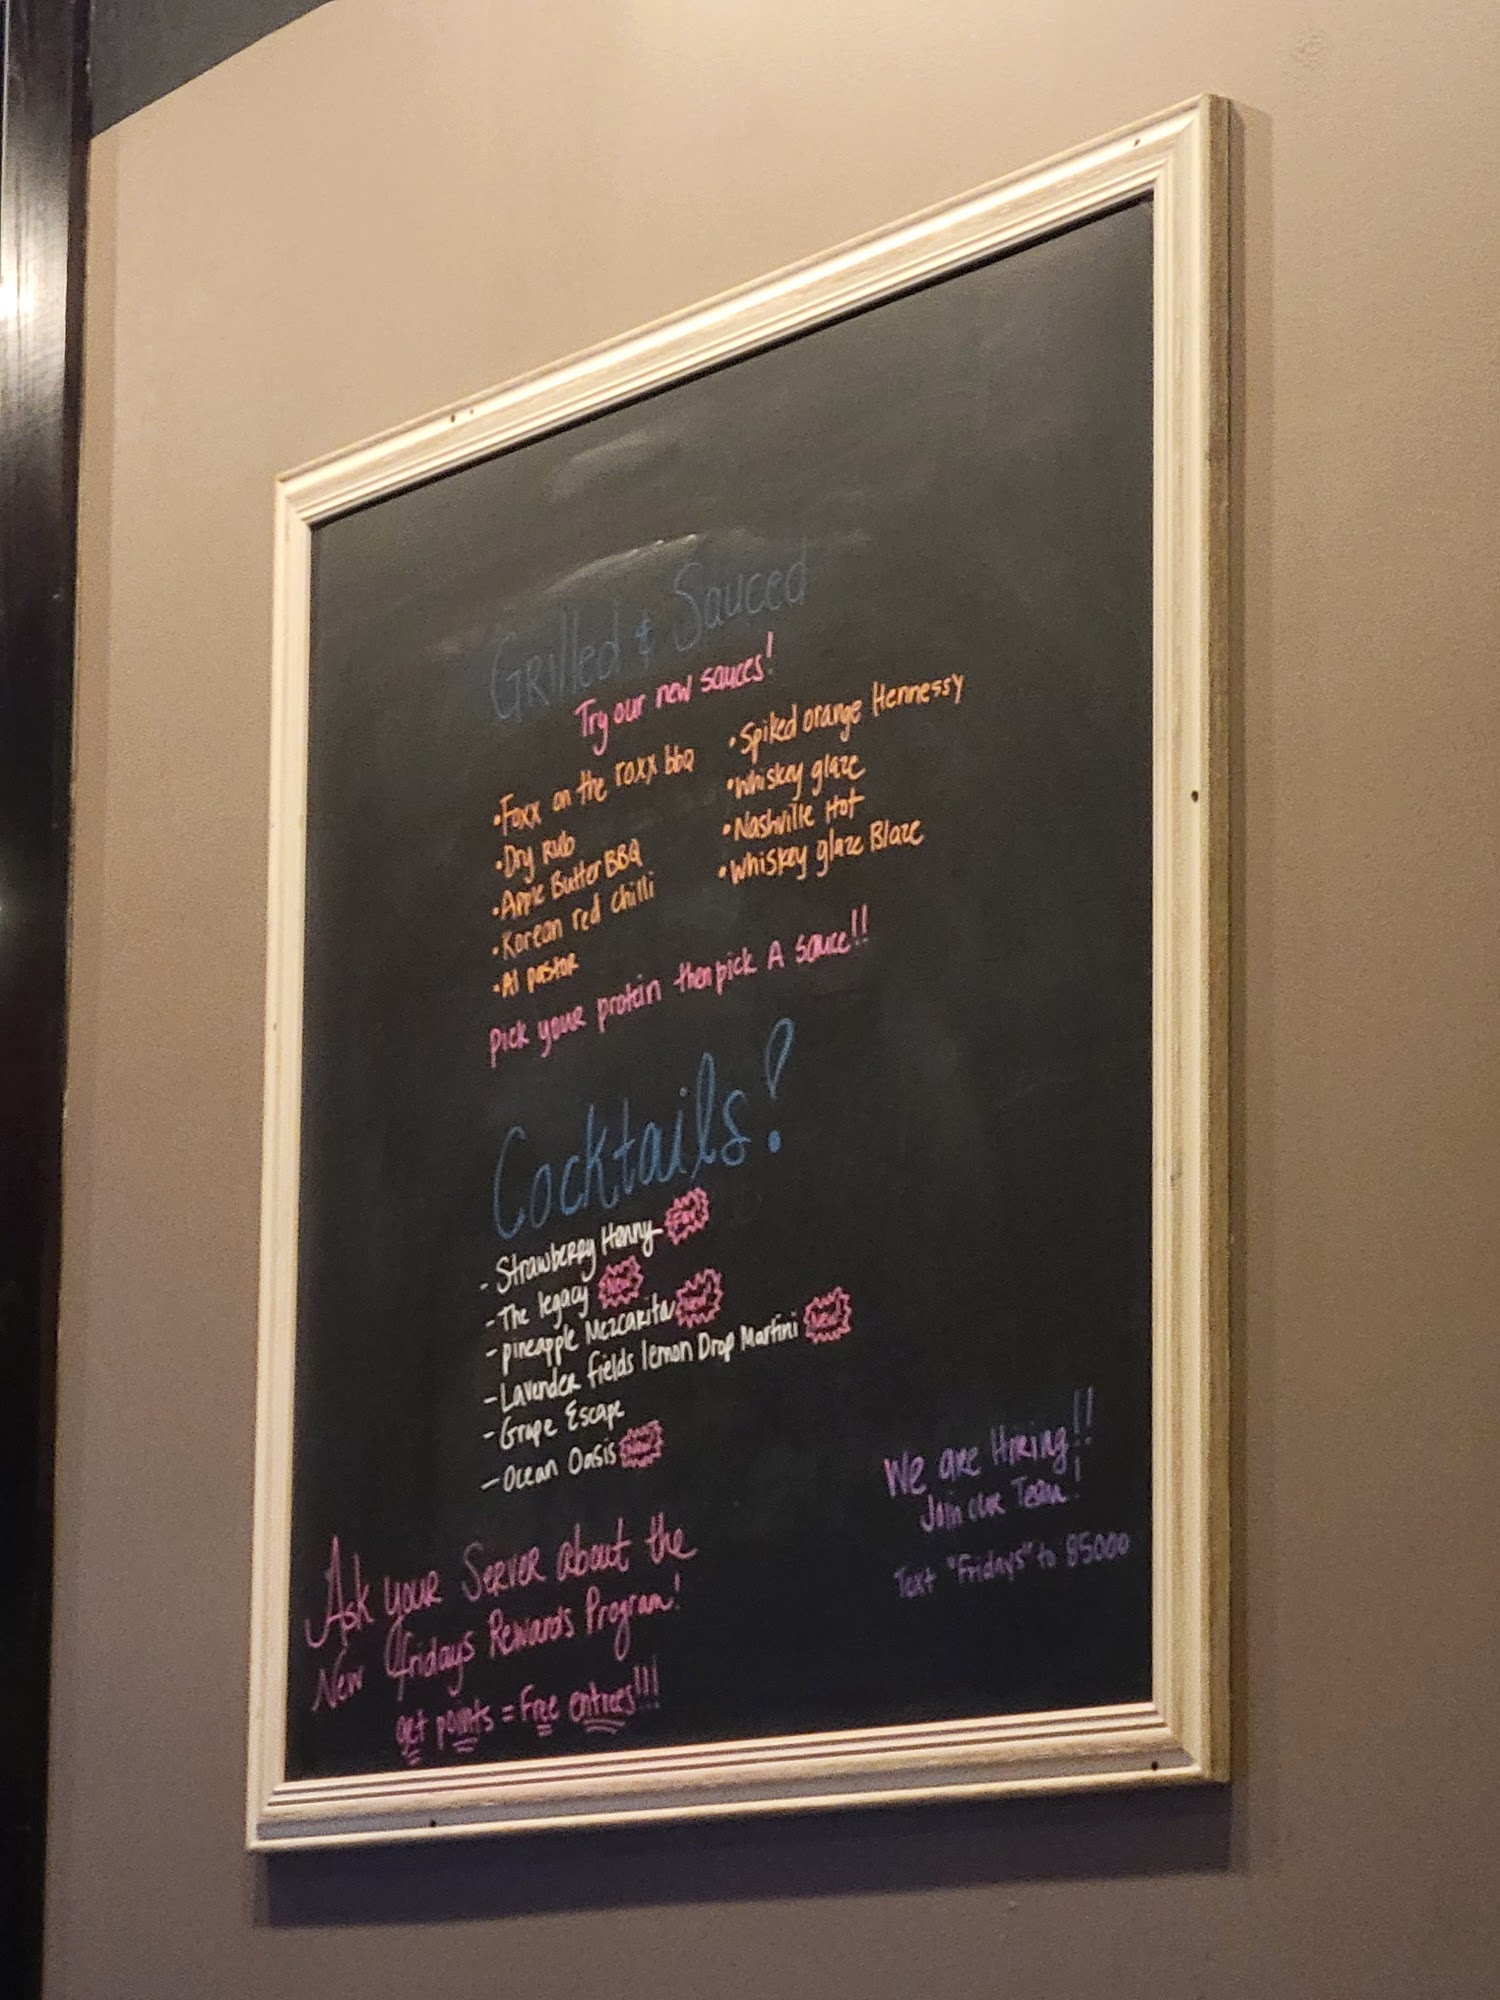 Grilled & Sauced
Try our new sauces!
• Foxx on the roxx bbq
• Dry rub
• Apple Butter BBQ
• Korean red chilli
• Al pastor
• Spiked orange Hennessy
• Whiskey glaze
• Nashville Hot
• Whiskey glaze Blaze
Pick your protein then pick A sauce!!
Cocktails!
- Strawberry Henny Fav
- The legacy New
- pineapple Mezcarita New
- Lavender fields lemon Drop Martini New
- Grape Escape
- Ocean Oasis New
Ask your Server about the
New Fridays Rewards Program!
get points = Free entrees!!!
We are Hiring!!
Join our Team!
Text "Fridays" to 85000